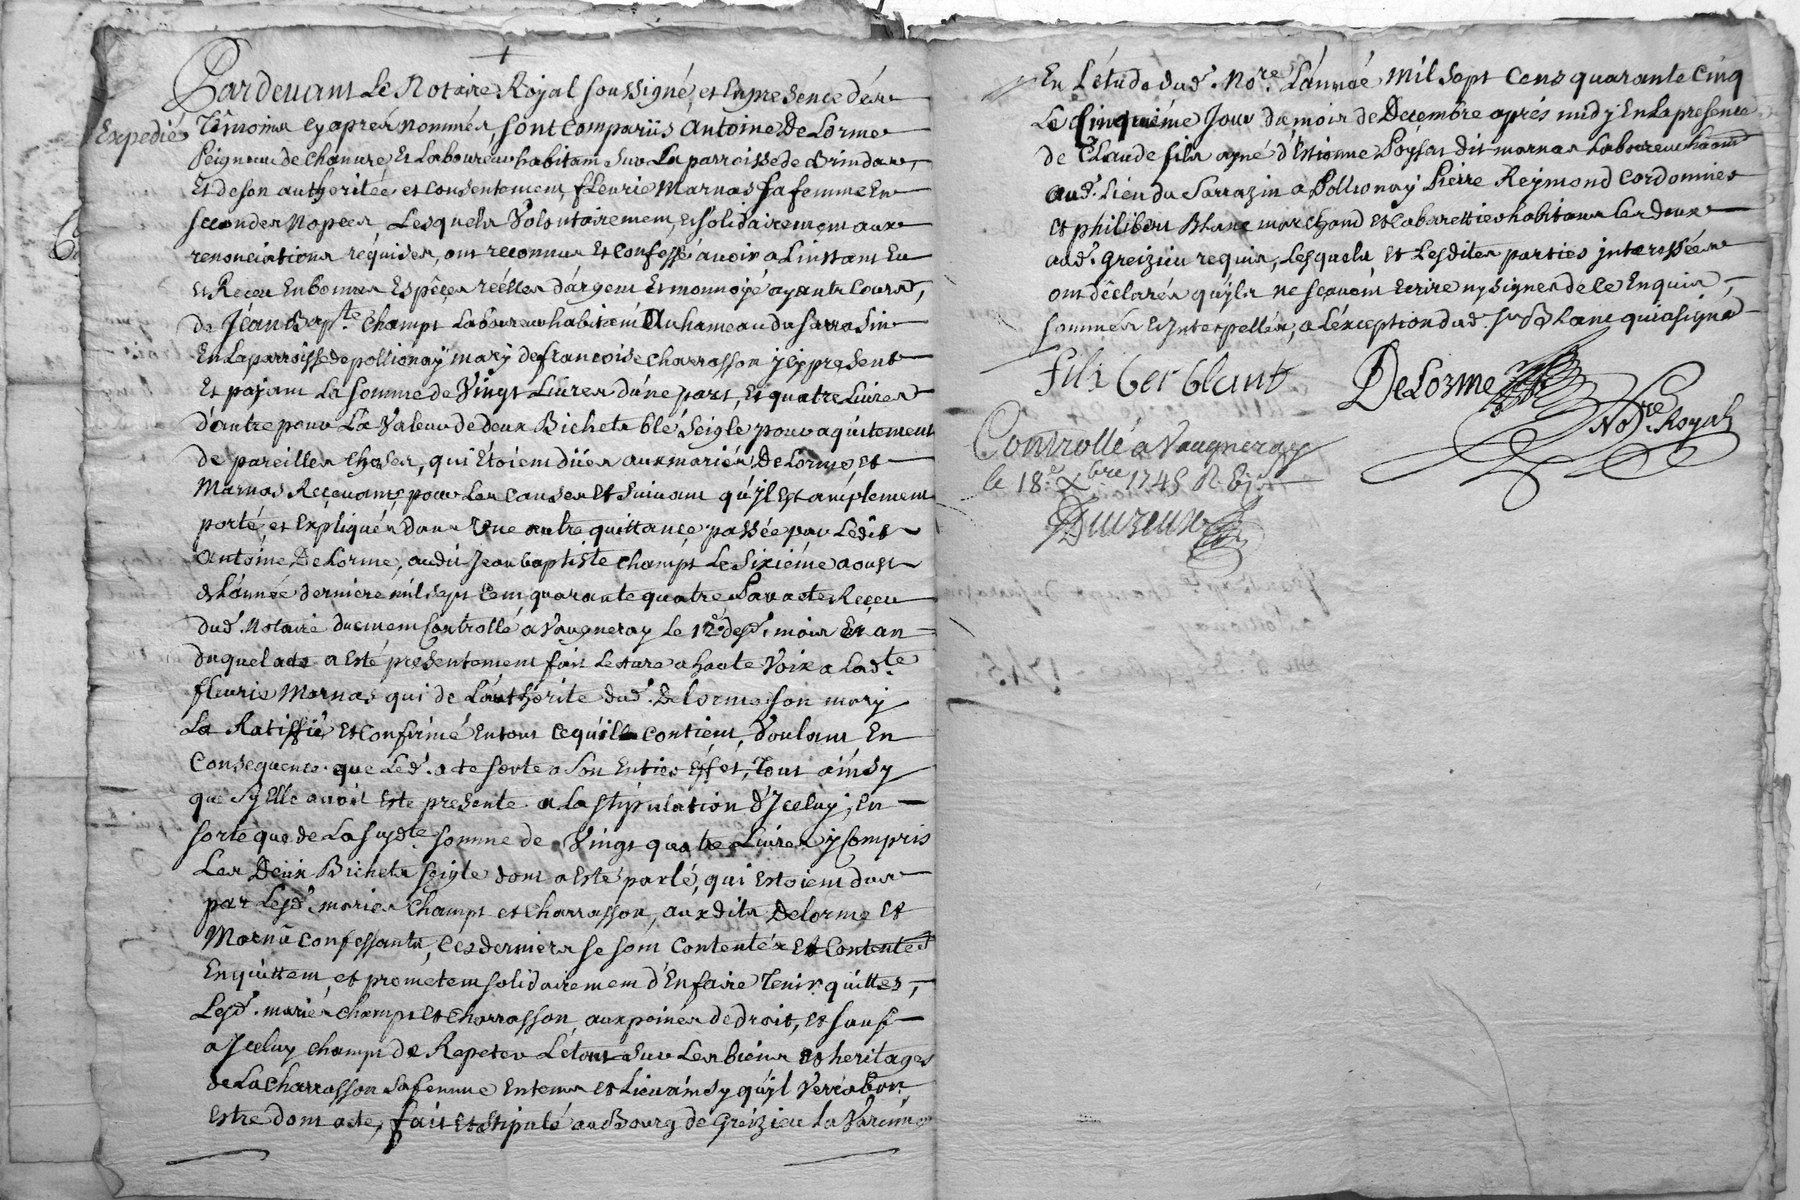 Pardevant Le Notaire Royal soussigné, et En presence des
Expedié
Témoins cy aprés nommés, sont comparüs Antoine DeLorme
Peigneur de chanvre Et Laboureur habitant Sur La parroisse de Brindas,
Et de son authoritée et consentement, fleurie Marnas sa femme En
secondes Nopces, Lesquels Volontairement, et solidairement aux
renonciations requises, ont reconnus Et Confessé avoir a Linstant Eu
et Reçeu En bonnes Espêçes réelles d'argent Et monnoÿe ayants Cours,
de Jean Bapte. Champt Laboureur habitant Au hameau du Sarrasin
En La parroisse de pollionaÿ mary de francoise Charrasson ycy present
Et payant La somme de Vingt Livres d'une part, Et quatre Livres
d'autre pour La Valeur de deux Bichets blé seigle pour aquitement
de pareilles choses, qui Etoient dües aux mariés DeLorme, et
Marnas Reçevants, pour Les Causes Et Suivant qu'jl Est amplement
porté, et Expliqués Dans Une autre quittance passée par Ledit
Antoine DeLorme, audit Jean baptiste Champt Le Sixiéme aoust
de L'année derniere mil sept Cent quarante quatre Par acte Reçeu
dud. Notaire duement Controllé a Vaugneray Le 12e. desd. mois Et an
duquel acte a Esté presentement fait Lecture a haute Voix a Ladte.
fleurie Marnas qui de L'authorite dud. Delorme son mary
La Ratiffié, Et Confirmé En tout Ce qu'il contient, Voulant En
Consequence que Led. acte sorte a Son Entier Effet, Tout ainsy
que sy Elle avoit Este presente a La stipulation d'Jceluy, En
sorte que de La susdte. somme de Vingt quatre Livres y Compris
Les Deux Bichets seigle dont a Esté parlé, qui Estoient dus
par Lesd. mariés Champt et Charrasson, auxdits Delorme et
Marnas Confessants, Ces derniers se sont contentés Et Contentés
En quittent, et prometent solidairement d'En faire Tenir quittes,
Lesd. mariés Champt et Charrasson, aux peines de droit, et sauf
a Jceluy Champt de Repeter Le tout Sur Les biens et heritages
de La Charrasson sa femme En tems et Lieu ainsy qu'jl Verra bon
Estre dont acte, fait Et Stipulé au Bourg de Greizieu la Varenne
En L'étude dud. Nore. L'année Mil sept Cens quarante cinq
Le Cinquiéme Jour du mois de Decembre aprés midy En La presence
de Claude fils ayné d'Estienne Poysat dit marnas Laboureur habitant
aud. Lieu du Sarrazin a Pollionay Pierre Reymond Cordonnier
Et philibert Blanc marchand Et Cabarettier habitans Les deux
aud. Greizieu requis, Lesquels Et Lesdites parties jnteressées
ont déclarés qu'jls ne sçavent Ecrire ny signer de ce Enquis,
sommés Et Jnterpellés, a L'exception dud. Sr. Blanc qui a signé
filiber blanc
DeLorme
Nore. Royal
Controllé a Vaugneray
le 18e. Xbre 1745 R.